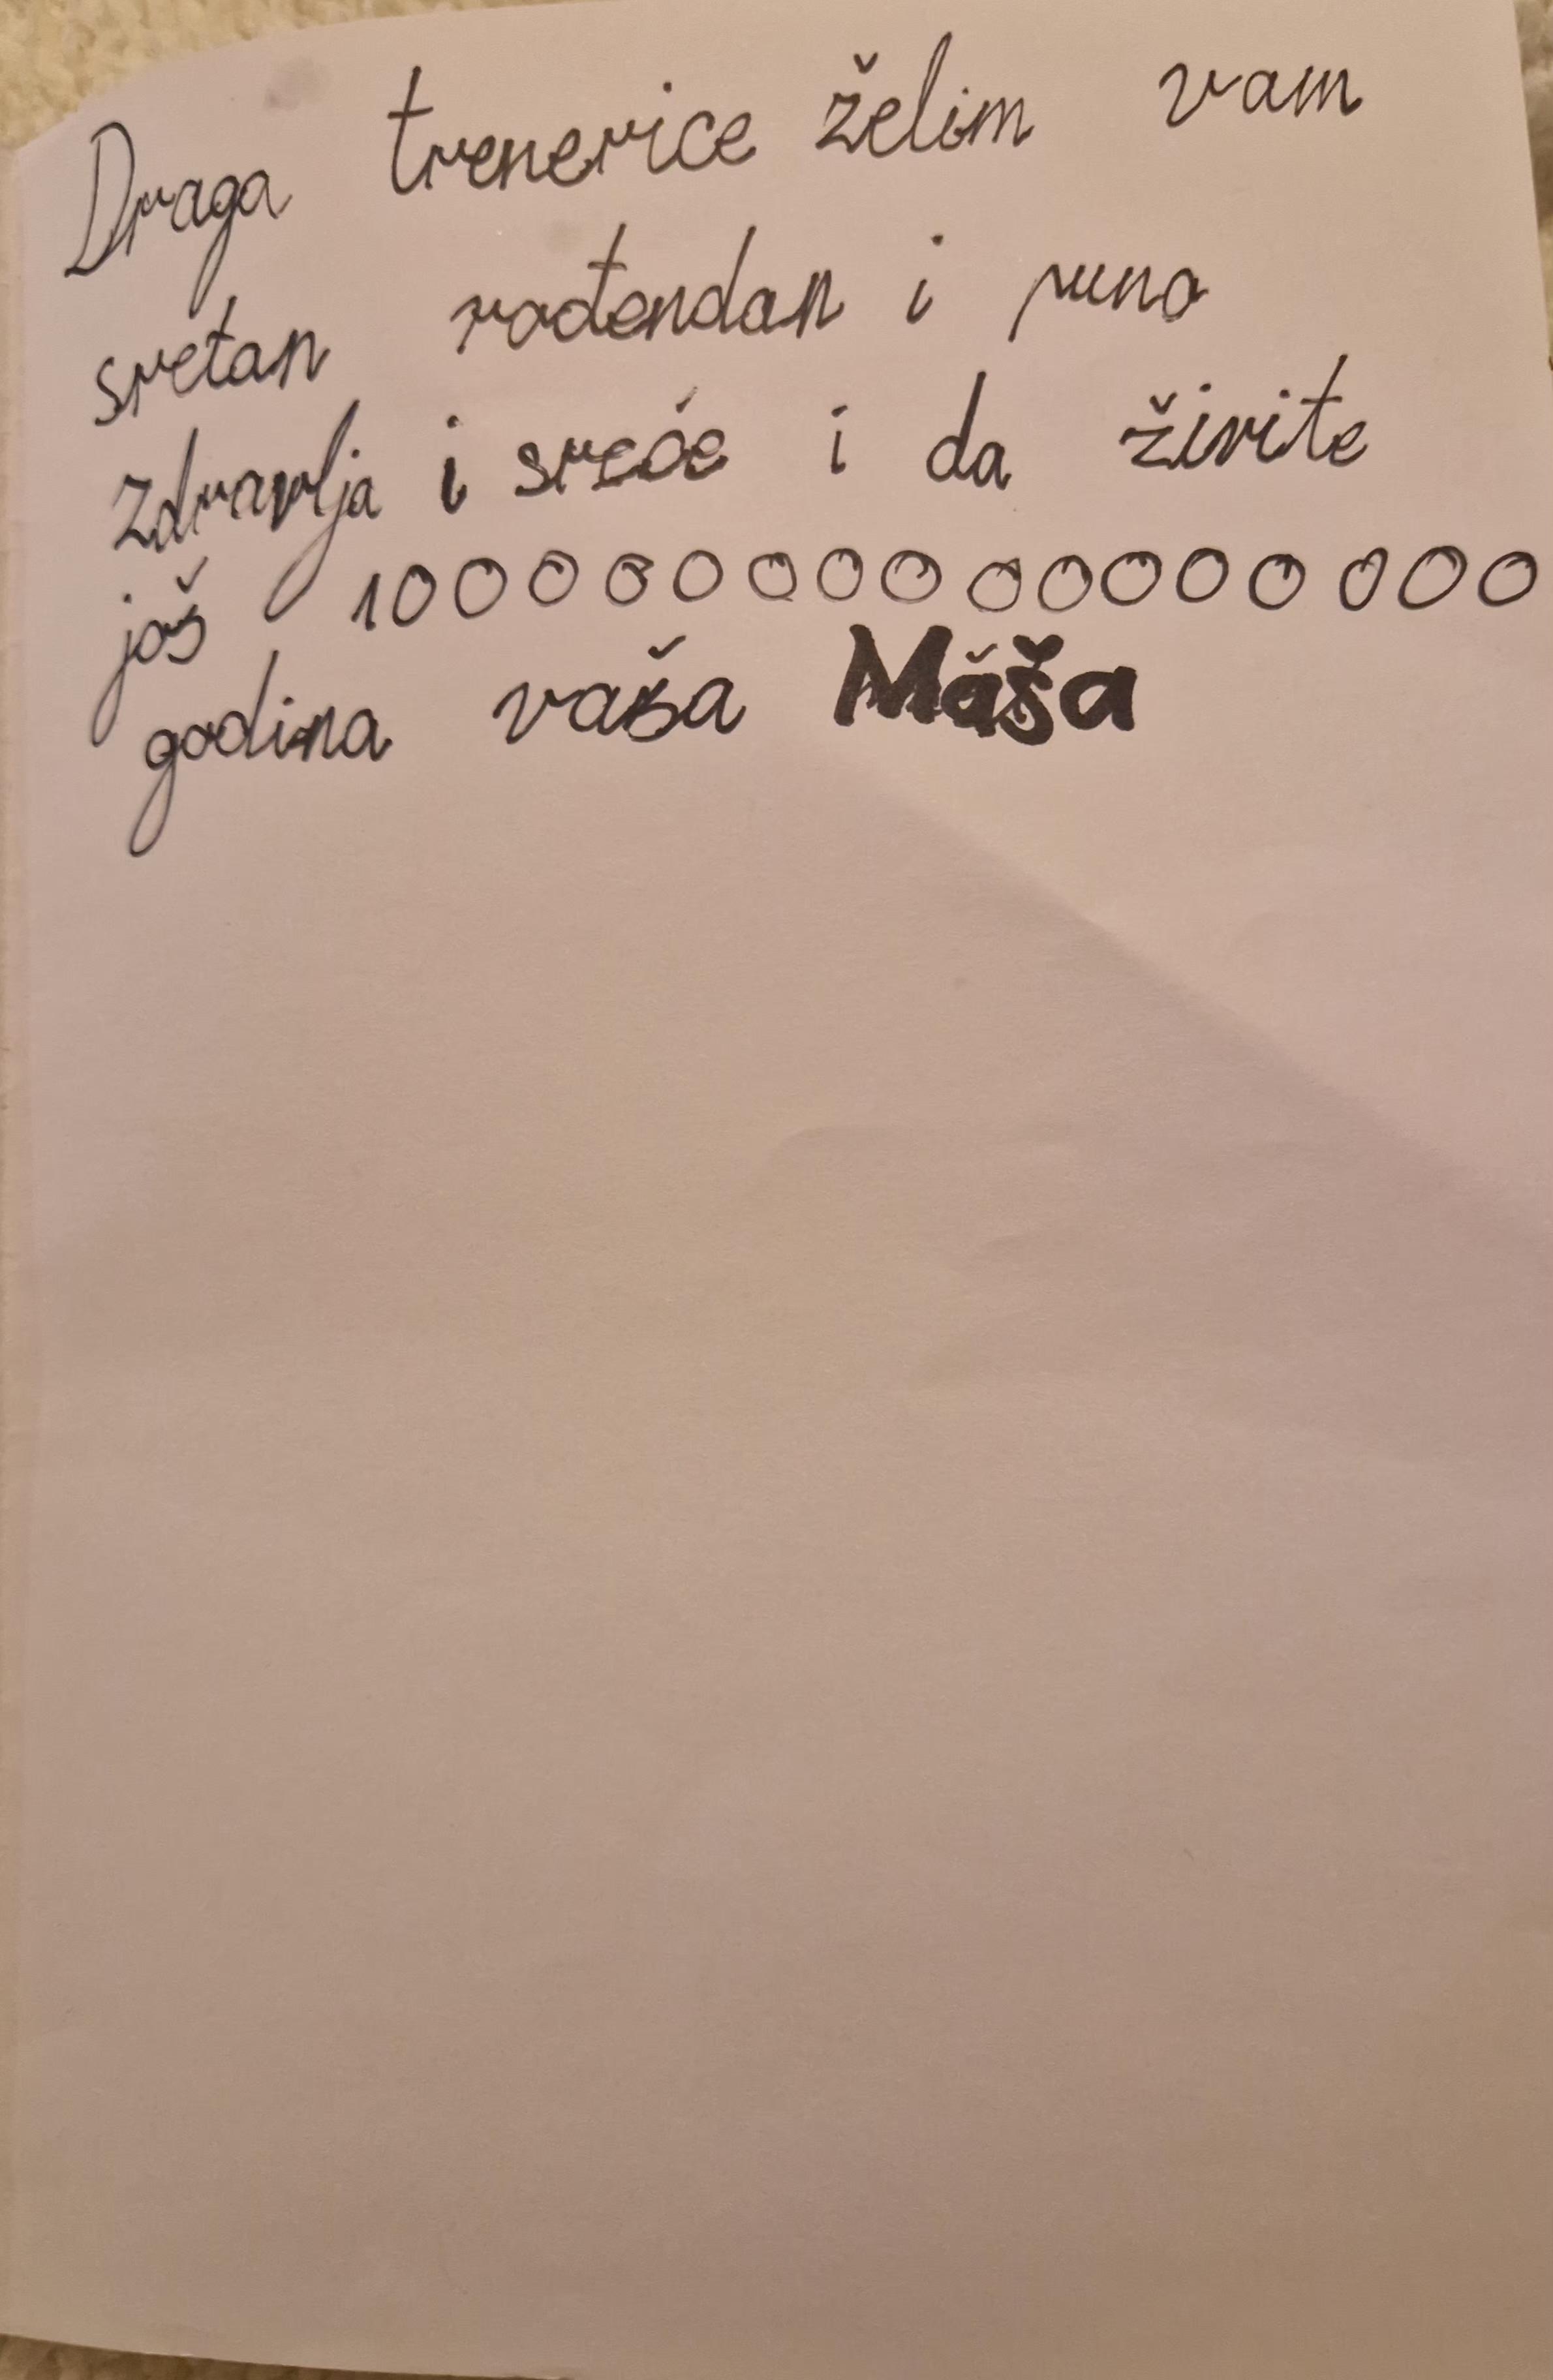 Draga trenerice želim vam
sretan rođendan i puno
zdravlja i sreće i da živite
još 10000000000000000
godina vaša Maša